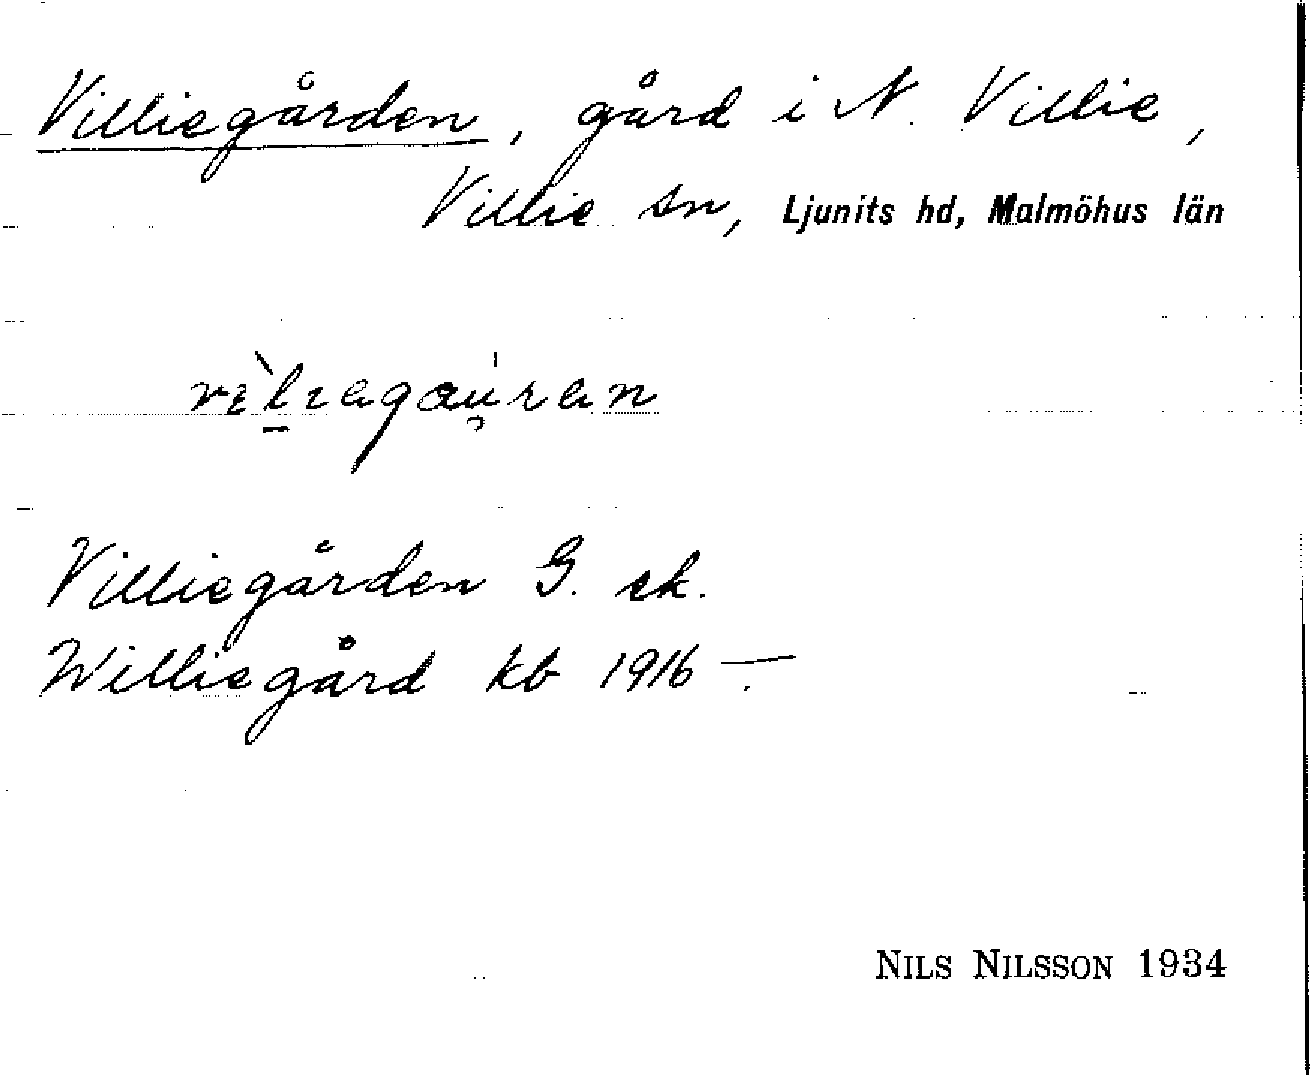 Villiegården, gård i N. Villie,
Villie sn, Ljunits hd, Malmöhus län
Villiegården G. ek.
Williegård kb 1916 —.
NILS NILSSON 1934